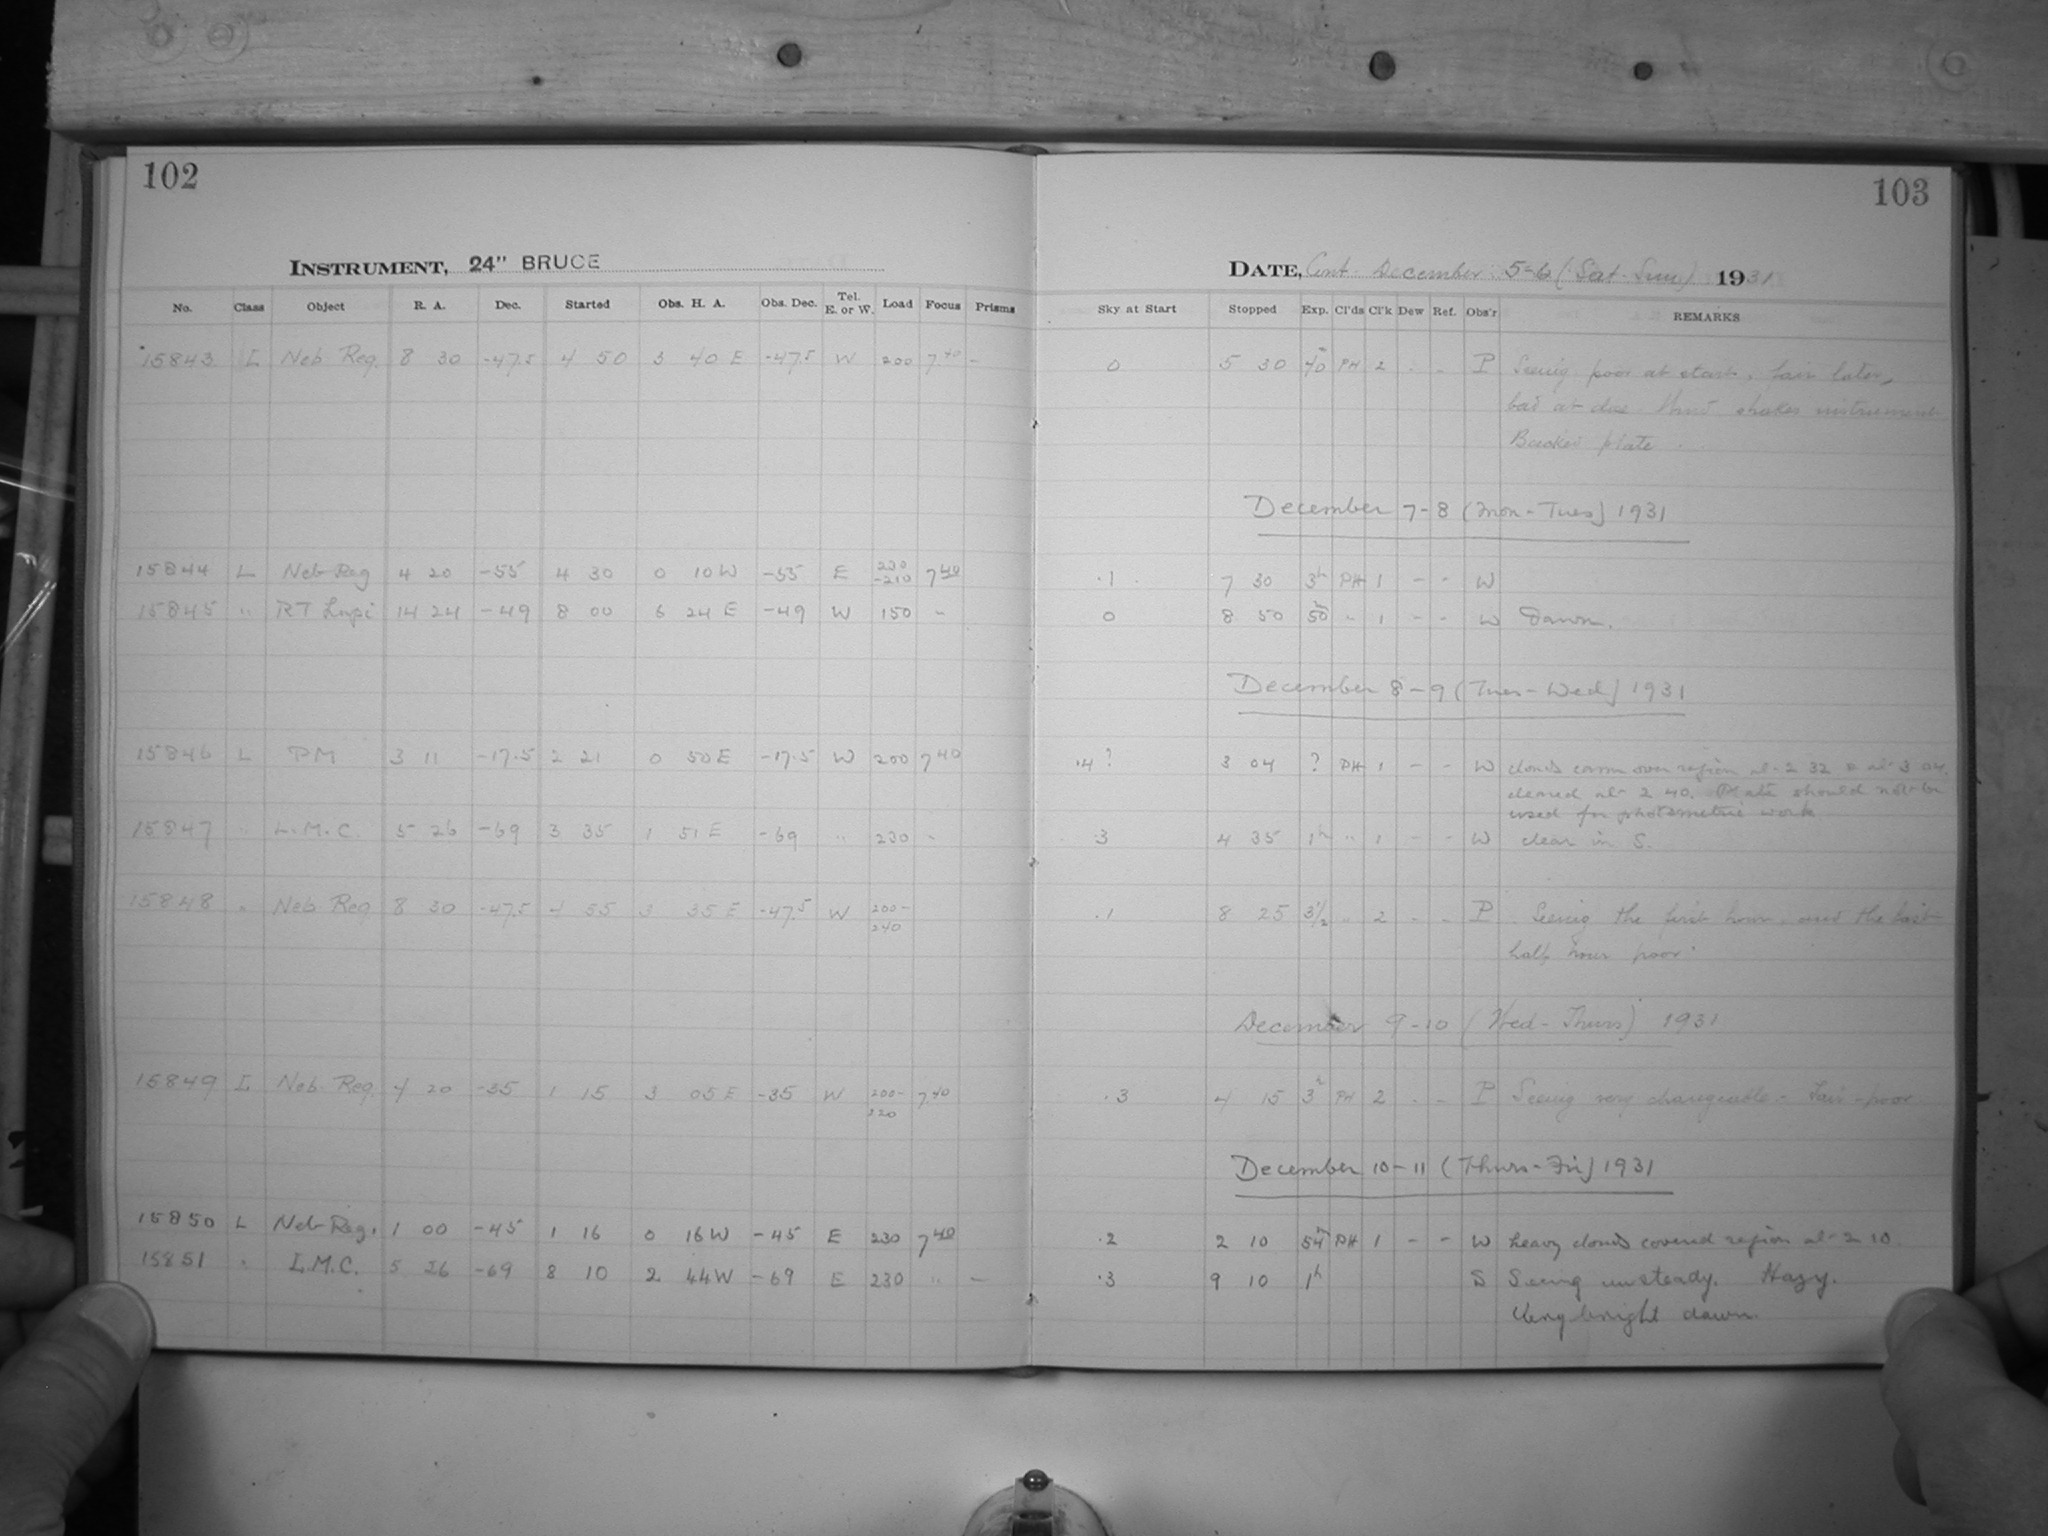 102
103
INSTRUMENT, 24" BRUCE
DATE, Cont. December 5-6 (Sat-Sun) 1931
No. Class Object R. A. Dec. Started Obs. H. A. Obs. Dec. Tel. E. or W. Load Focus Prisms Sky at Start Stopped Exp. Cl'ds Cl'k Dew Ref. Obs'r REMARKS
15843 L Neb Reg. 8 30 -47.5 4 50 3 40 E -47.5 W 200 7.40 - 0 5 30 40m PH 2 - - P Seeing poor at start, fair later,
bad at close. Wind shakes instrument
Backed plate.
December 7-8 (Mon-Tues) 1931
15844 L Neb Reg 4 20 -55 4 30 0 10 W -55 E 230-210 7.40 .1 7 30 3h PH 1 - - W
15845 " RT Lupi 14 24 -49 8 00 6 24 E -49 W 150 " 0 8 50 50m " 1 - - W Dawn.
December 8-9 (Tues-Wed) 1931
15846 L PM 3 11 -17.5 2 21 0 50 E -17.5 W 200 7.40 .4? 3 04 ? PH 1 - - W clouds came over region at 2 32 & at 3 04.
cleared at 2 40. Plate should not be
used for photometric work
15847 " L.M.C. 5 26 -69 3 35 1 51 E -69 " 230 " .3 4 35 1h " 1 - - W clear in S.
15848 " Neb Reg 8 30 -47.5 4 55 3 35 E -47.5 W 200-240 .1 8 25 3 1/2 " 2 - - P Seeing the first hour and the last
half hour poor.
December 9-10 (Wed-Thurs) 1931
15849 L Neb. Reg. 4 20 -35 1 15 3 05 E -35 W 200-220 7.40 .3 4 15 3h PH 2 - - P Seeing very changeable - Fair-poor
December 10-11 (Thurs-Fri) 1931
15850 L Neb Reg. 1 00 -45 1 16 0 16 W -45 E 230 7.40 .2 2 10 54m PH 1 - - W heavy clouds covered region at 2 10.
15851 " L.M.C. 5 26 -69 8 10 2 44 W -69 E 230 " - .3 9 10 1h S Seeing unsteady. Hazy.
Very bright dawn.